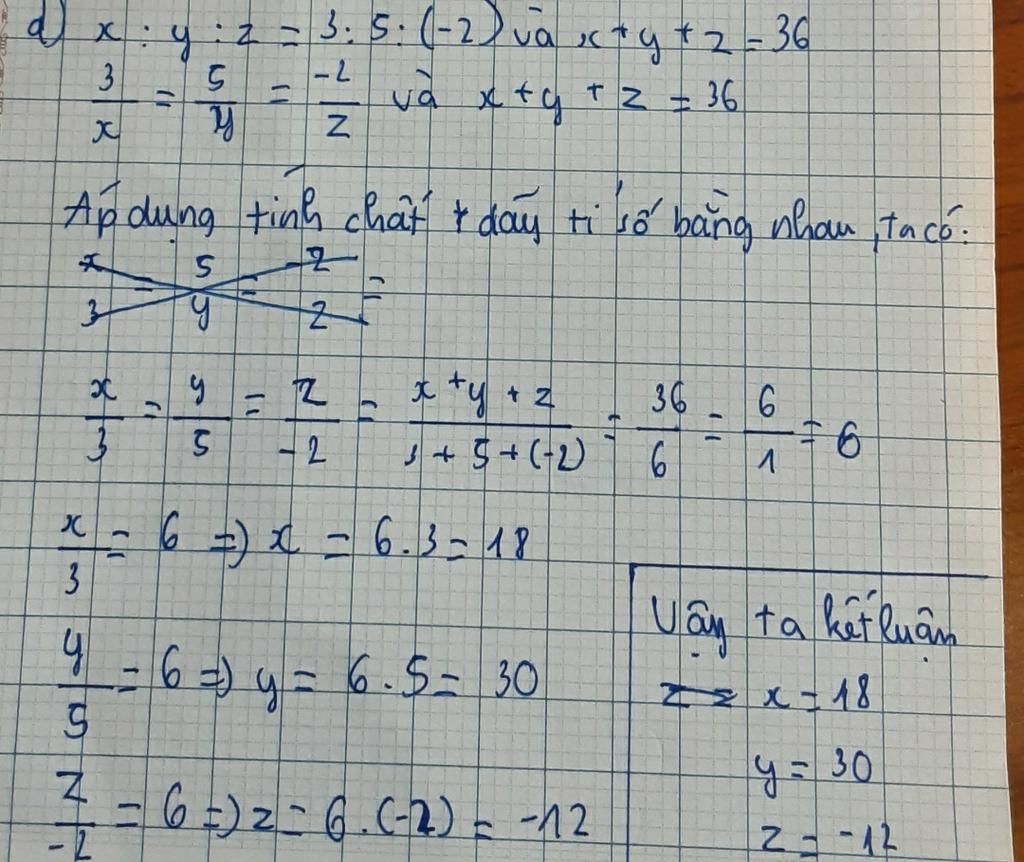 d) x : y : z = 3 : 5 : (-2) và x + y + z = 36
3/x = 5/y = -2/z và x + y + z = 36
Áp dụng tính chất dãy tỉ số bằng nhau, ta có:
x/3 = 5/y = -2/z =
x/3 = y/5 = z/-2 = x + y + z / 3 + 5 + (-2) = 36/6 = 6/1 = 6
x/3 = 6 => x = 6 . 3 = 18
y/5 = 6 => y = 6 . 5 = 30
z/-2 = 6 => z = 6 . (-2) = -12
Vậy ta kết luận
x = 18
y = 30
z = -12